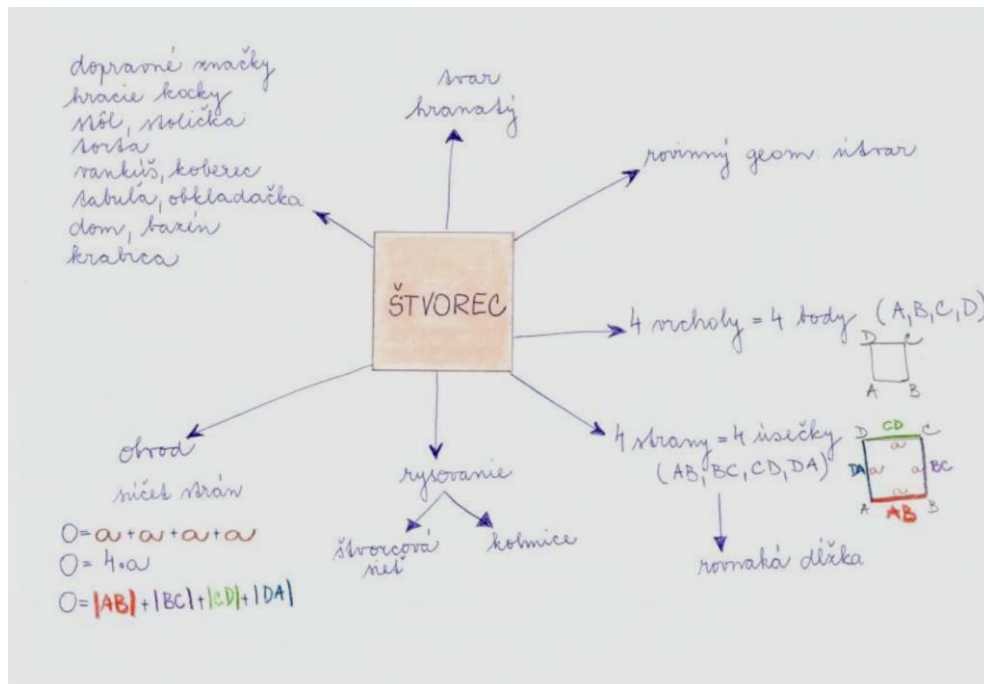 dopravné značky
hracie kocky
stôl, stolička
torta
vankúš, koberec
tabuľa, obkladačka
dom, bazén
krabica
tvar
hranatý
rovinný geom. útvar
ŠTVOREC
4 vrcholy = 4 body (A, B, C, D)
D C
A B
4 strany = 4 úsečky
(AB, BC, CD, DA)
D CD C
a
DA a a BC
a
A AB B
rovnaká dĺžka
rysovanie
štvorcová
sieť
kolmice
obvod
súčet strán
O = a + a + a + a
O = 4·a
O = |AB| + |BC| + |CD| + |DA|